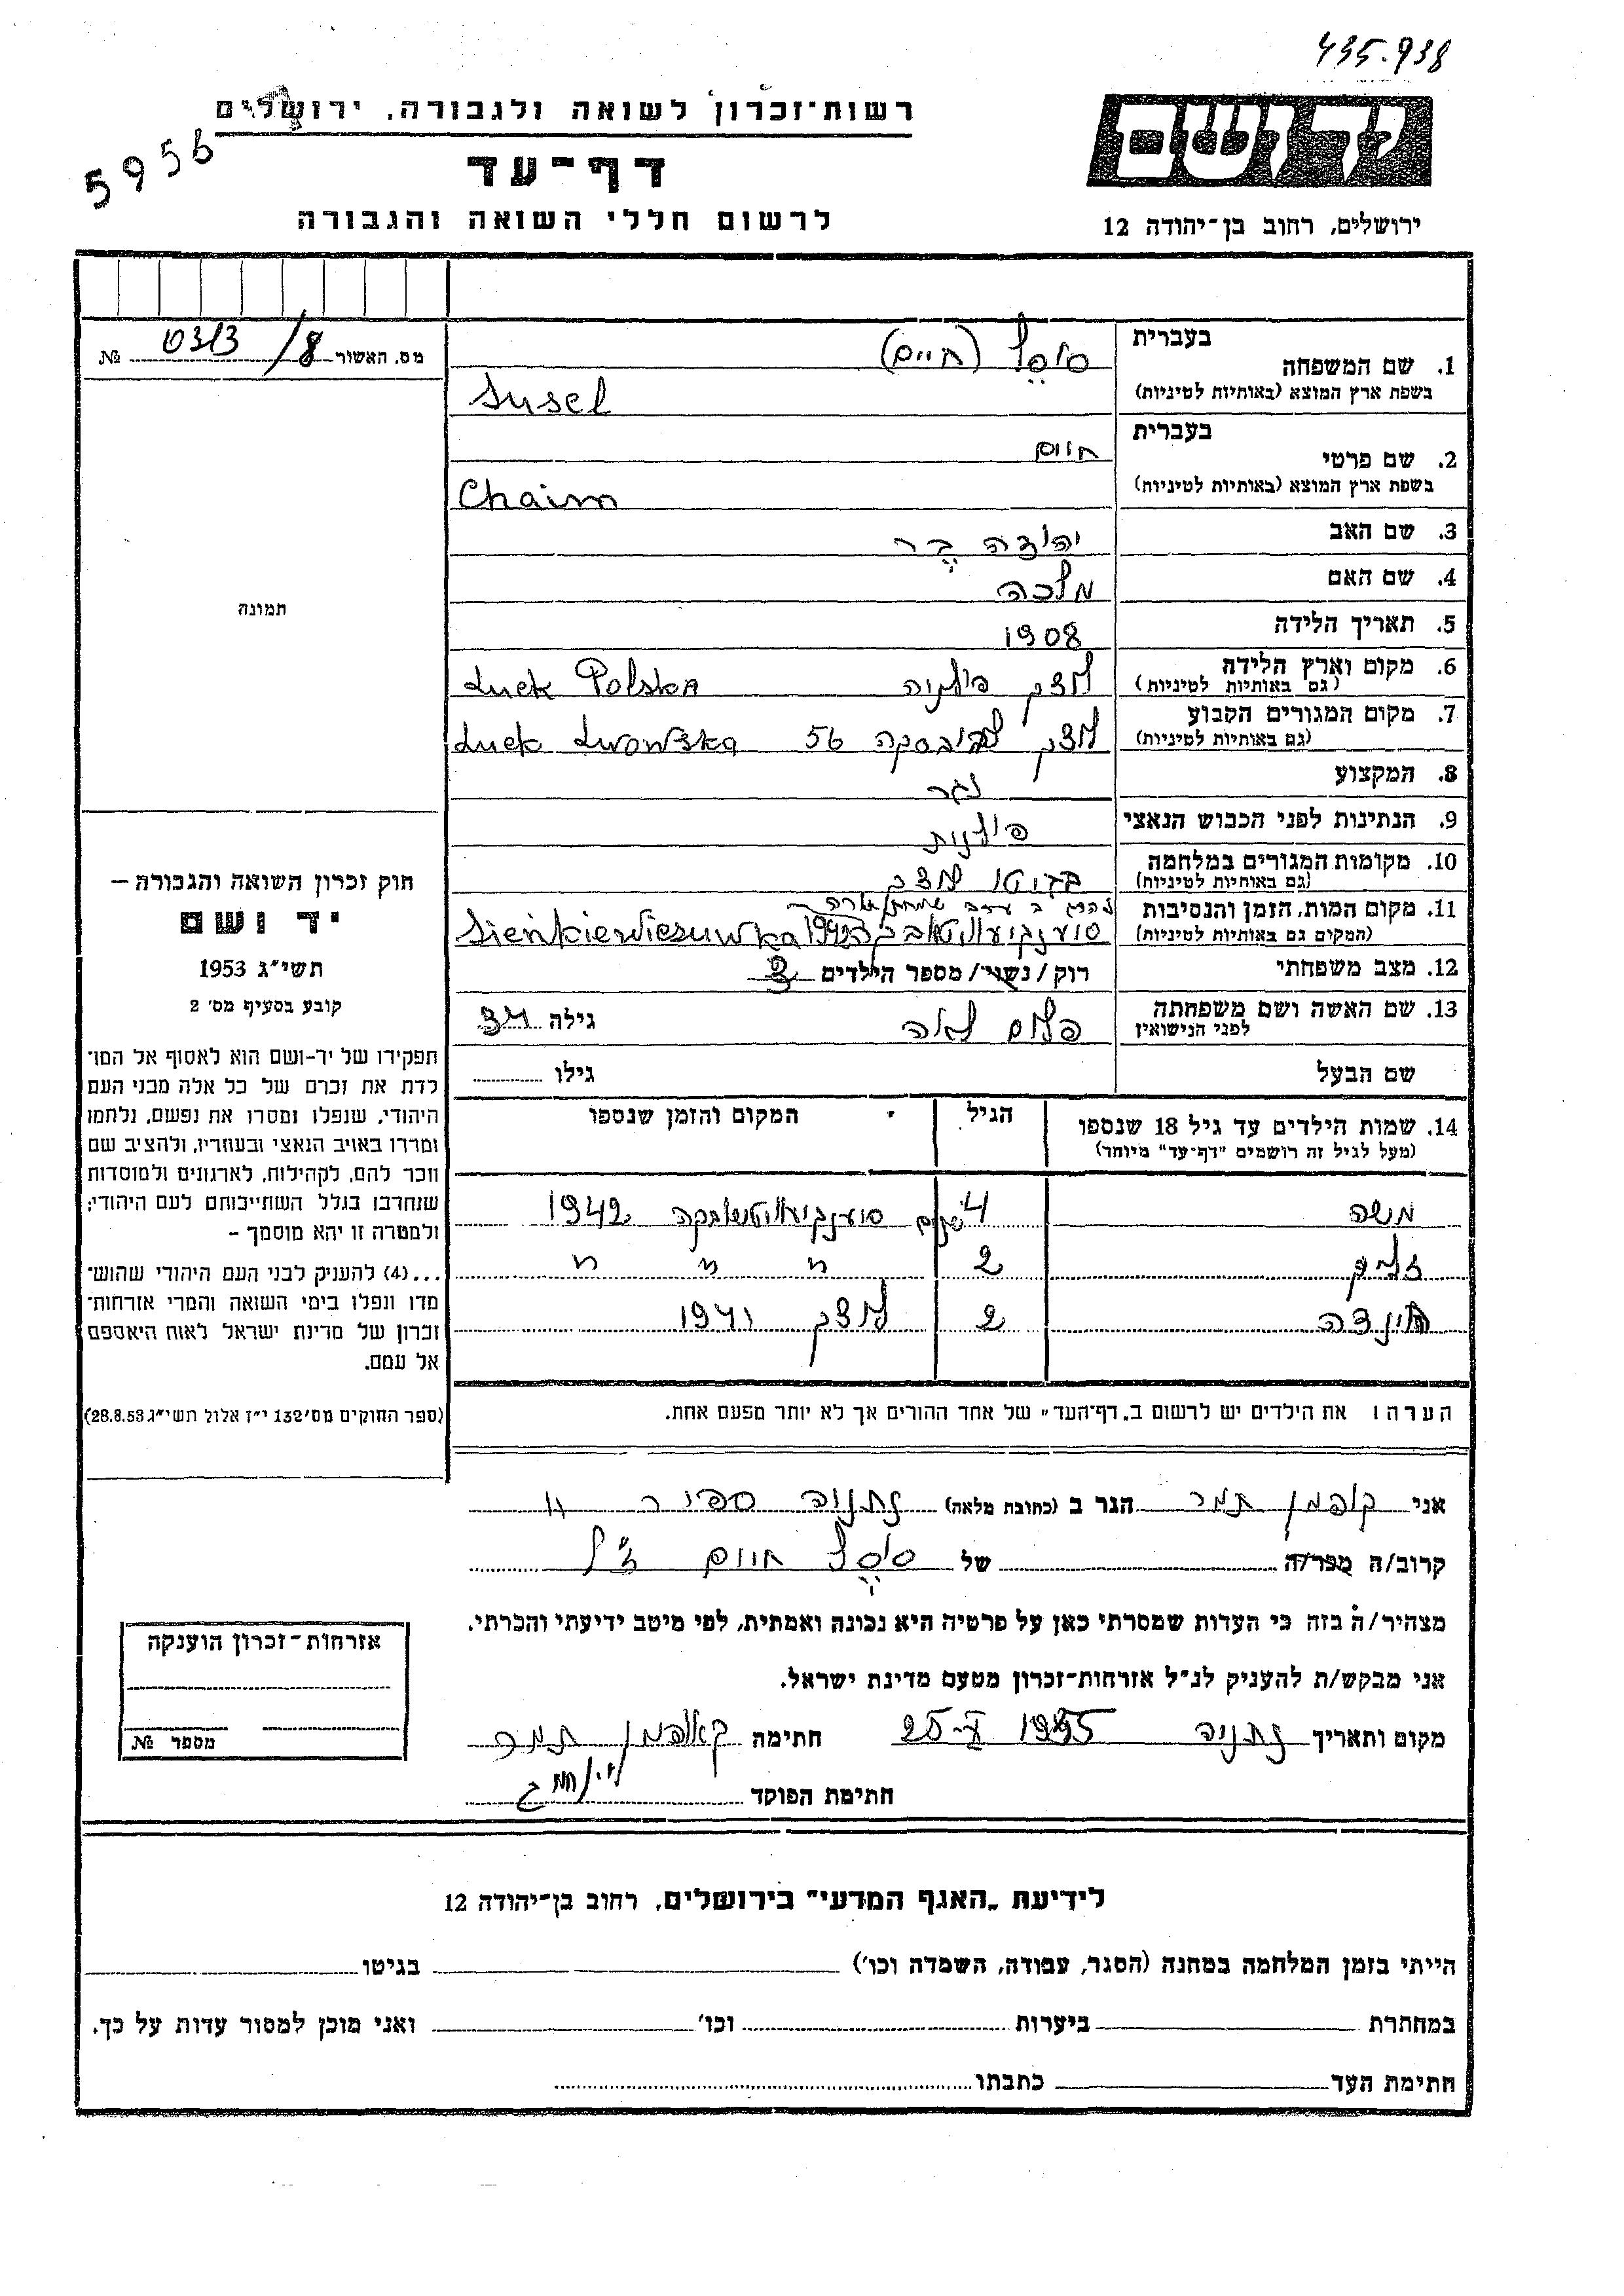 435.938
רשות־זכרון לשואה ולגבורה, ירושלים
5956
דף־עד
לרשום חללי השואה והגבורה
יד ושם
ירושלים, רחוב בן־יהודה 12
מס. האשור 0313/8 №
1. שם המשפחה
בעברית
סוסל (חיים)
בשפת ארץ המוצא (באותיות לטיניות)
Susel
2. שם פרטי
בעברית
חיים
בשפת ארץ המוצא (באותיות לטיניות)
Chaim
3. שם האב
יהודה בר
4. שם האם
מלכה
5. תאריך הלידה
1908
6. מקום וארץ הלידה
(גם באותיות לטיניות)
לוצק פולניה Łuck Polska
7. מקום המגורים הקבוע
(גם באותיות לטיניות)
לוצק לבובסקה 56 Łuck Lwowska
8. המקצוע
נגר
9. הנתינות לפני הכבוש הנאצי
פולנית
10. מקומות המגורים במלחמה
(גם באותיות לטיניות)
בגיטו לוצק
11. מקום המות, הזמן והנסיבות
(המקום גם באותיות לטיניות)
Sienkiewiczuwka 1942
12. מצב משפחתי
רוק/נשוי/מספר הילדים 3
13. שם האשה ושם משפחתה
לפני הנישואין
לאה גילה 34
שם הבעל גילו
14. שמות הילדים עד גיל 18 שנספו
(מעל לגיל זה רושמים "דף־עד" מיוחד)
הגיל
המקום והזמן שנספו
משה 4 שנים 1942
זליק 2 " " "
2 לוצק 1941
הערה: את הילדים יש לרשום ב„דף־העד" של אחד ההורים אך לא יותר מפעם אחת.
תמונה
חוק זכרון השואה והגבורה —
יד ושם
תשי״ג 1953
קובע בסעיף מס' 2
תפקידו של יד-ושם הוא לאסוף אל המו־
לדת את זכרם של כל אלה מבני העם
היהודי, שנפלו ומסרו את נפשם, נלחמו
ומרדו באויב הנאצי ובעוזריו, ולהציב שם
וזכר להם, לקהילות, לארגונים ולמוסדות
שנחרבו בגלל השתייכותם לעם היהודי;
ולמטרה זו יהא מוסמך —
...(4) להעניק לבני העם היהודי שהוש־
מדו ונפלו בימי השואה והמרי אזרחות־
זכרון של מדינת ישראל לאות היאספם
אל עמם.
(ספר החוקים מס' 132 י״ז אלול תשי״ג 28.8.53)
אני קופמן תמר הגר ב (כתובת מלאה) נתניה ספיר 11
קרוב/ה מכר/ה של סוסל חיים ז"ל
מצהיר/ה בזה כי העדות שמסרתי כאן על פרטיה היא נכונה ואמתית, לפי מיטב ידיעתי והכרתי.
אני מבקש/ת להעניק לנ״ל אזרחות־זכרון מטעם מדינת ישראל.
מקום ותאריך נתניה 1955 חתימה קאופמן תמר
חתימת הפוקד
אזרחות־זכרון הוענקה
מספר №
לידיעת „האגף המדעי" בירושלים, רחוב בן־יהודה 12
הייתי בזמן המלחמה במחנה (הסגר, עבודה, השמדה וכו') בגיטו
במחתרת ביערות וכו' ואני מוכן למסור עדות על כך.
חתימת העד כתבתו